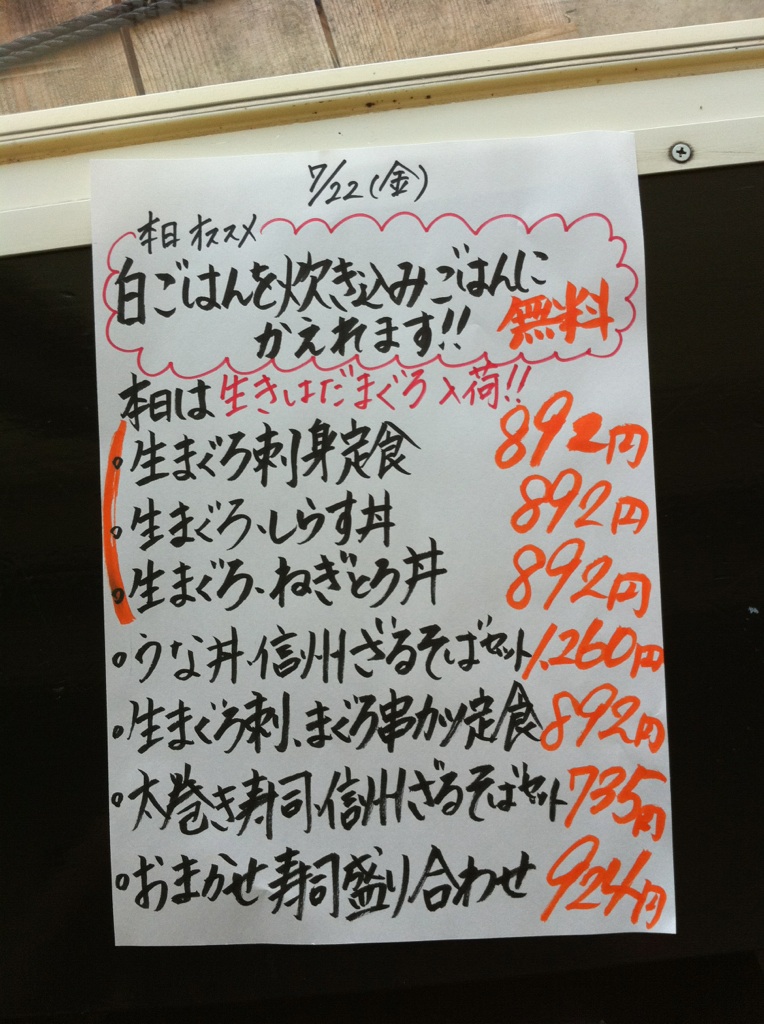 7/22(金)
本日オススメ
白ごはんを炊き込みごはんに
かえれます!! 無料
本日は生きはだまぐろ入荷!!
。生まぐろ刺身定食 892円
。生まぐろ、しらす丼 892円
。生まぐろ、ねぎとろ丼 892円
。うな丼、信州ざるそばセット 1,260円
。生まぐろ刺、まぐろ串カツ定食 892円
。太巻き寿司、信州ざるそばセット 735円
。おまかせ寿司盛り合わせ 924円